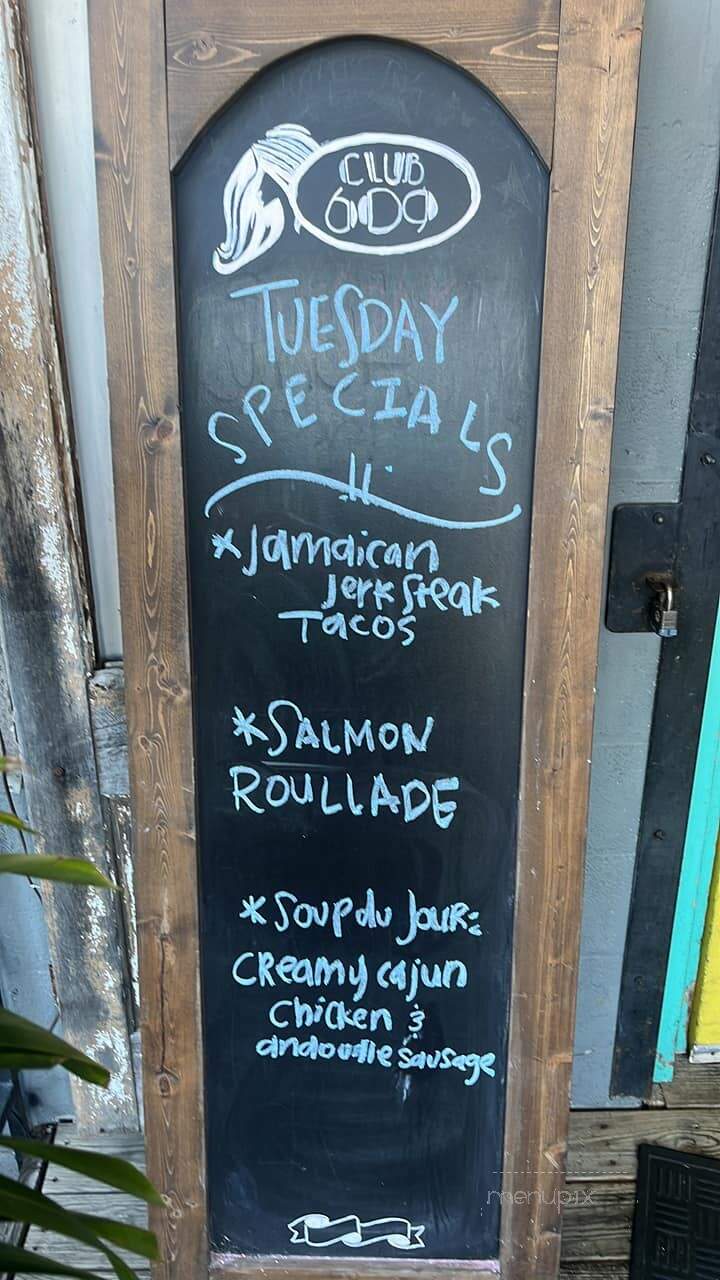 CLUB
609
TUESDAY
SPECIALS
*Jamaican
Jerk Steak
Tacos
*SALMON
ROULLADE
*Soup du Jour:
Creamy cajun
Chicken &
andouille sausage
menupix